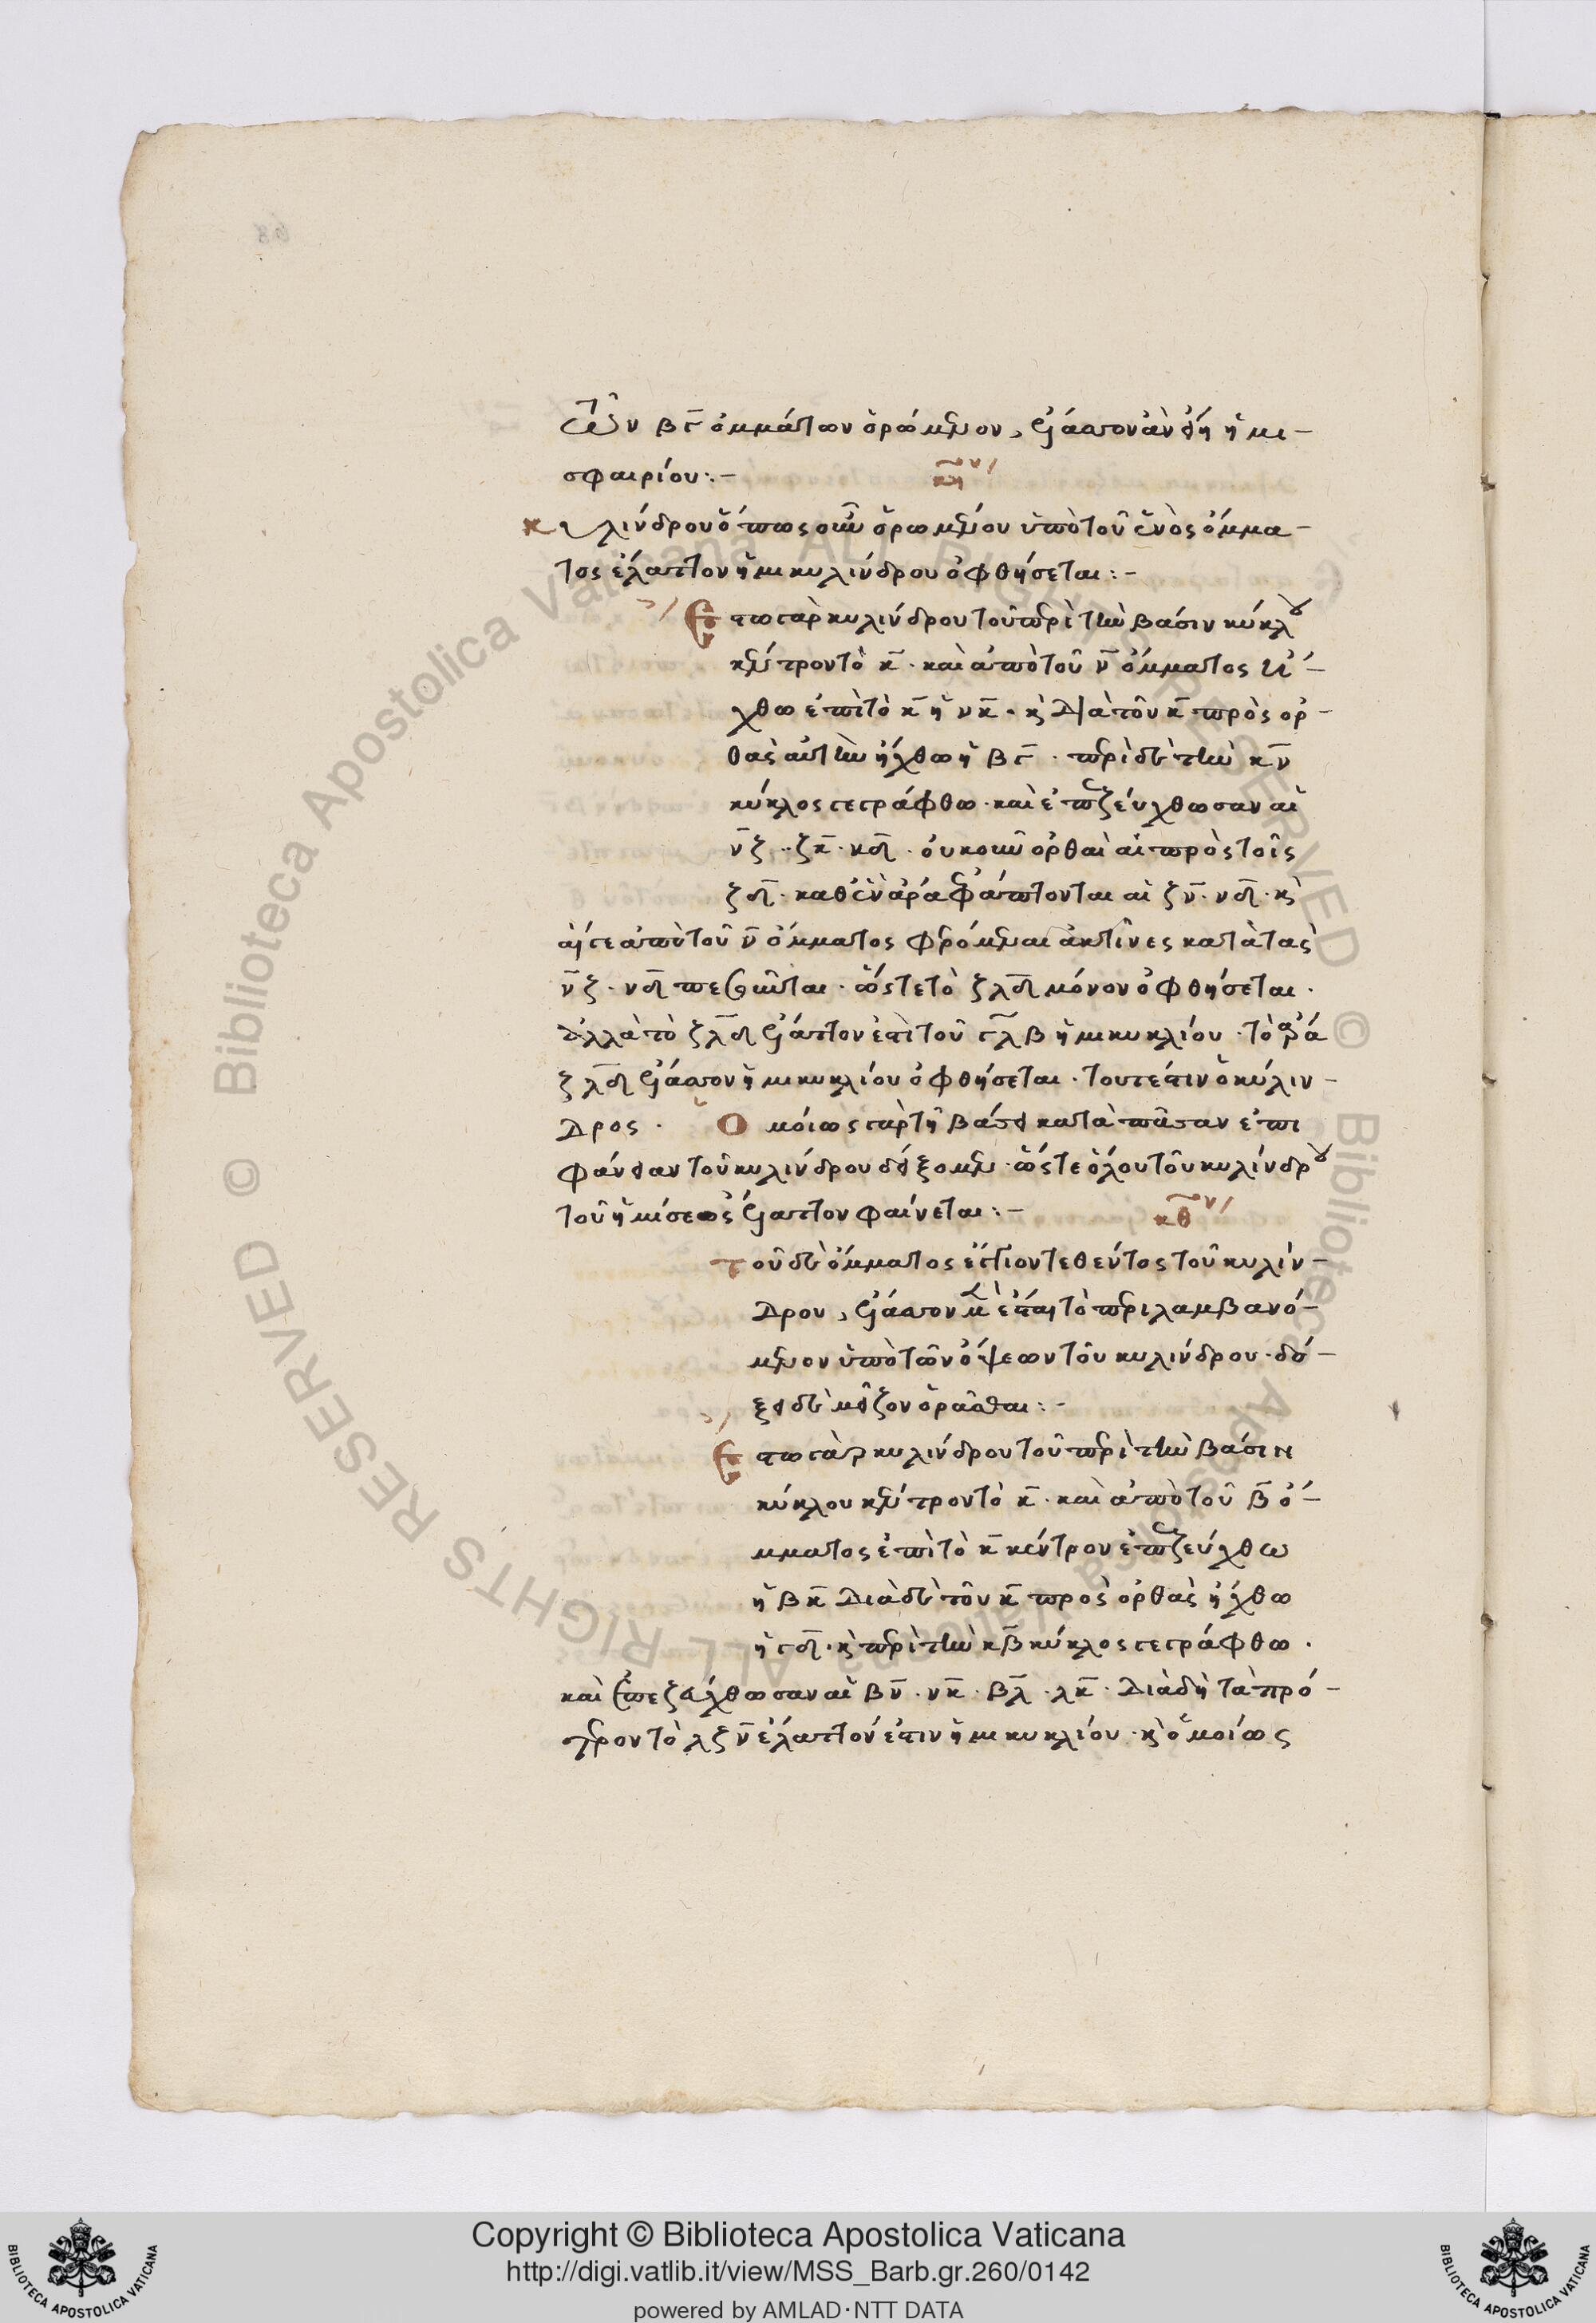 τῶν βγ ὀμμάτων ὁρώμενον, ἔλαττον ἂν εἴη ἡμι-
σφαιρίου:-
κη
κυλίνδρου ὅπως οὖν ὁρωμένου ὑπὸ τοῦ ἑνὸς ὄμμα-
τος ἔλαττον ἡμικυλίνδρου ὀφθήσεται:-
Ἔστω γὰρ κυλίνδρου τοῦ περὶ τὴν βάσιν κύκλου
κέντρον τὸ κ. καὶ ἀπὸ τοῦ ν ὄμματος ἤ-
χθω ἐπὶ τὸ κ ἡ νκ. κὶ διὰ τοῦ κ πρὸς ὀρ-
θὰς αὐτὴν ἤχθω ἡ βγ. περὶ δὲ τὴν κν
κύκλος γεγράφθω. καὶ ἐπεζεύχθωσαν αἱ
νζ. ζκ. κδ. οὐκοῦν ὀρθαὶ αἱ πρὸς τοῖς
ζδ. καθ' ἓν ἄρα ἐφάπτονται αἱ ζν. νδ. κὶ
αἵ γε ἀπὸ τοῦ ν ὄμματος φερόμεναι ἀκτῖνες κατὰ τὰς
νζ. νδ πεσοῦνται. ὥστε τὸ ζλδ μόνον ὀφθήσεται.
ἀλλὰ τὸ ζλδ ἔλαττον ἐστὶ τοῦ γλβ ἡμικυκλίου. τὸ ἄρα
ζλδ ἔλαττον ἡμικυκλίου ὀφθήσεται. τουτέστιν ὁ κύλιν-
δρος. Ὁμοίως γὰρ τῇ βάσει κατὰ πᾶσαν ἐπι
φάνειαν τοῦ κυλίνδρου δείξομεν. ὥστε ὅλου τοῦ κυλίνδρου
τοῦ ἡμίσεως ἔλαττον φαίνεται:-
κθ
τοῦ δὲ ὄμματος ἔγγιον τεθέντος τοῦ κυλίν-
δρου, ἔλαττον μὲν ἔσται τὸ περιλαμβανό-
μενον ὑπὸ τῶν ὄψεων τοῦ κυλίνδρου. δό-
ξει δὲ μεῖζον ὁρᾶσθαι:-
Ἔστω γὰρ κυλίνδρου τοῦ περὶ τὴν βάσιν
κύκλου κέντρον τὸ κ. καὶ ἀπὸ τοῦ β ὄ-
μματος ἐπὶ τὸ κ κέντρον ἐπεζεύχθω
ἡ βκ διὰ δὲ τοῦ κ πρὸς ὀρθὰς ἤχθω
ἡ γδ. κὶ περὶ τὴν κβ κύκλος γεγράφθω.
καὶ ἐπεζεύχθωσαν αἱ βν. νκ. βλ. λκ. διὰ δὴ τὰ πρό-
τερον τὸ λζν ἔλαττόν ἐστιν ἡμικυκλίου. κὶ ὁμοίως
Copyright © Biblioteca Apostolica Vaticana
http://digi.vatlib.it/view/MSS_Barb.gr.260/0142
powered by AMLAD·NTT DATA